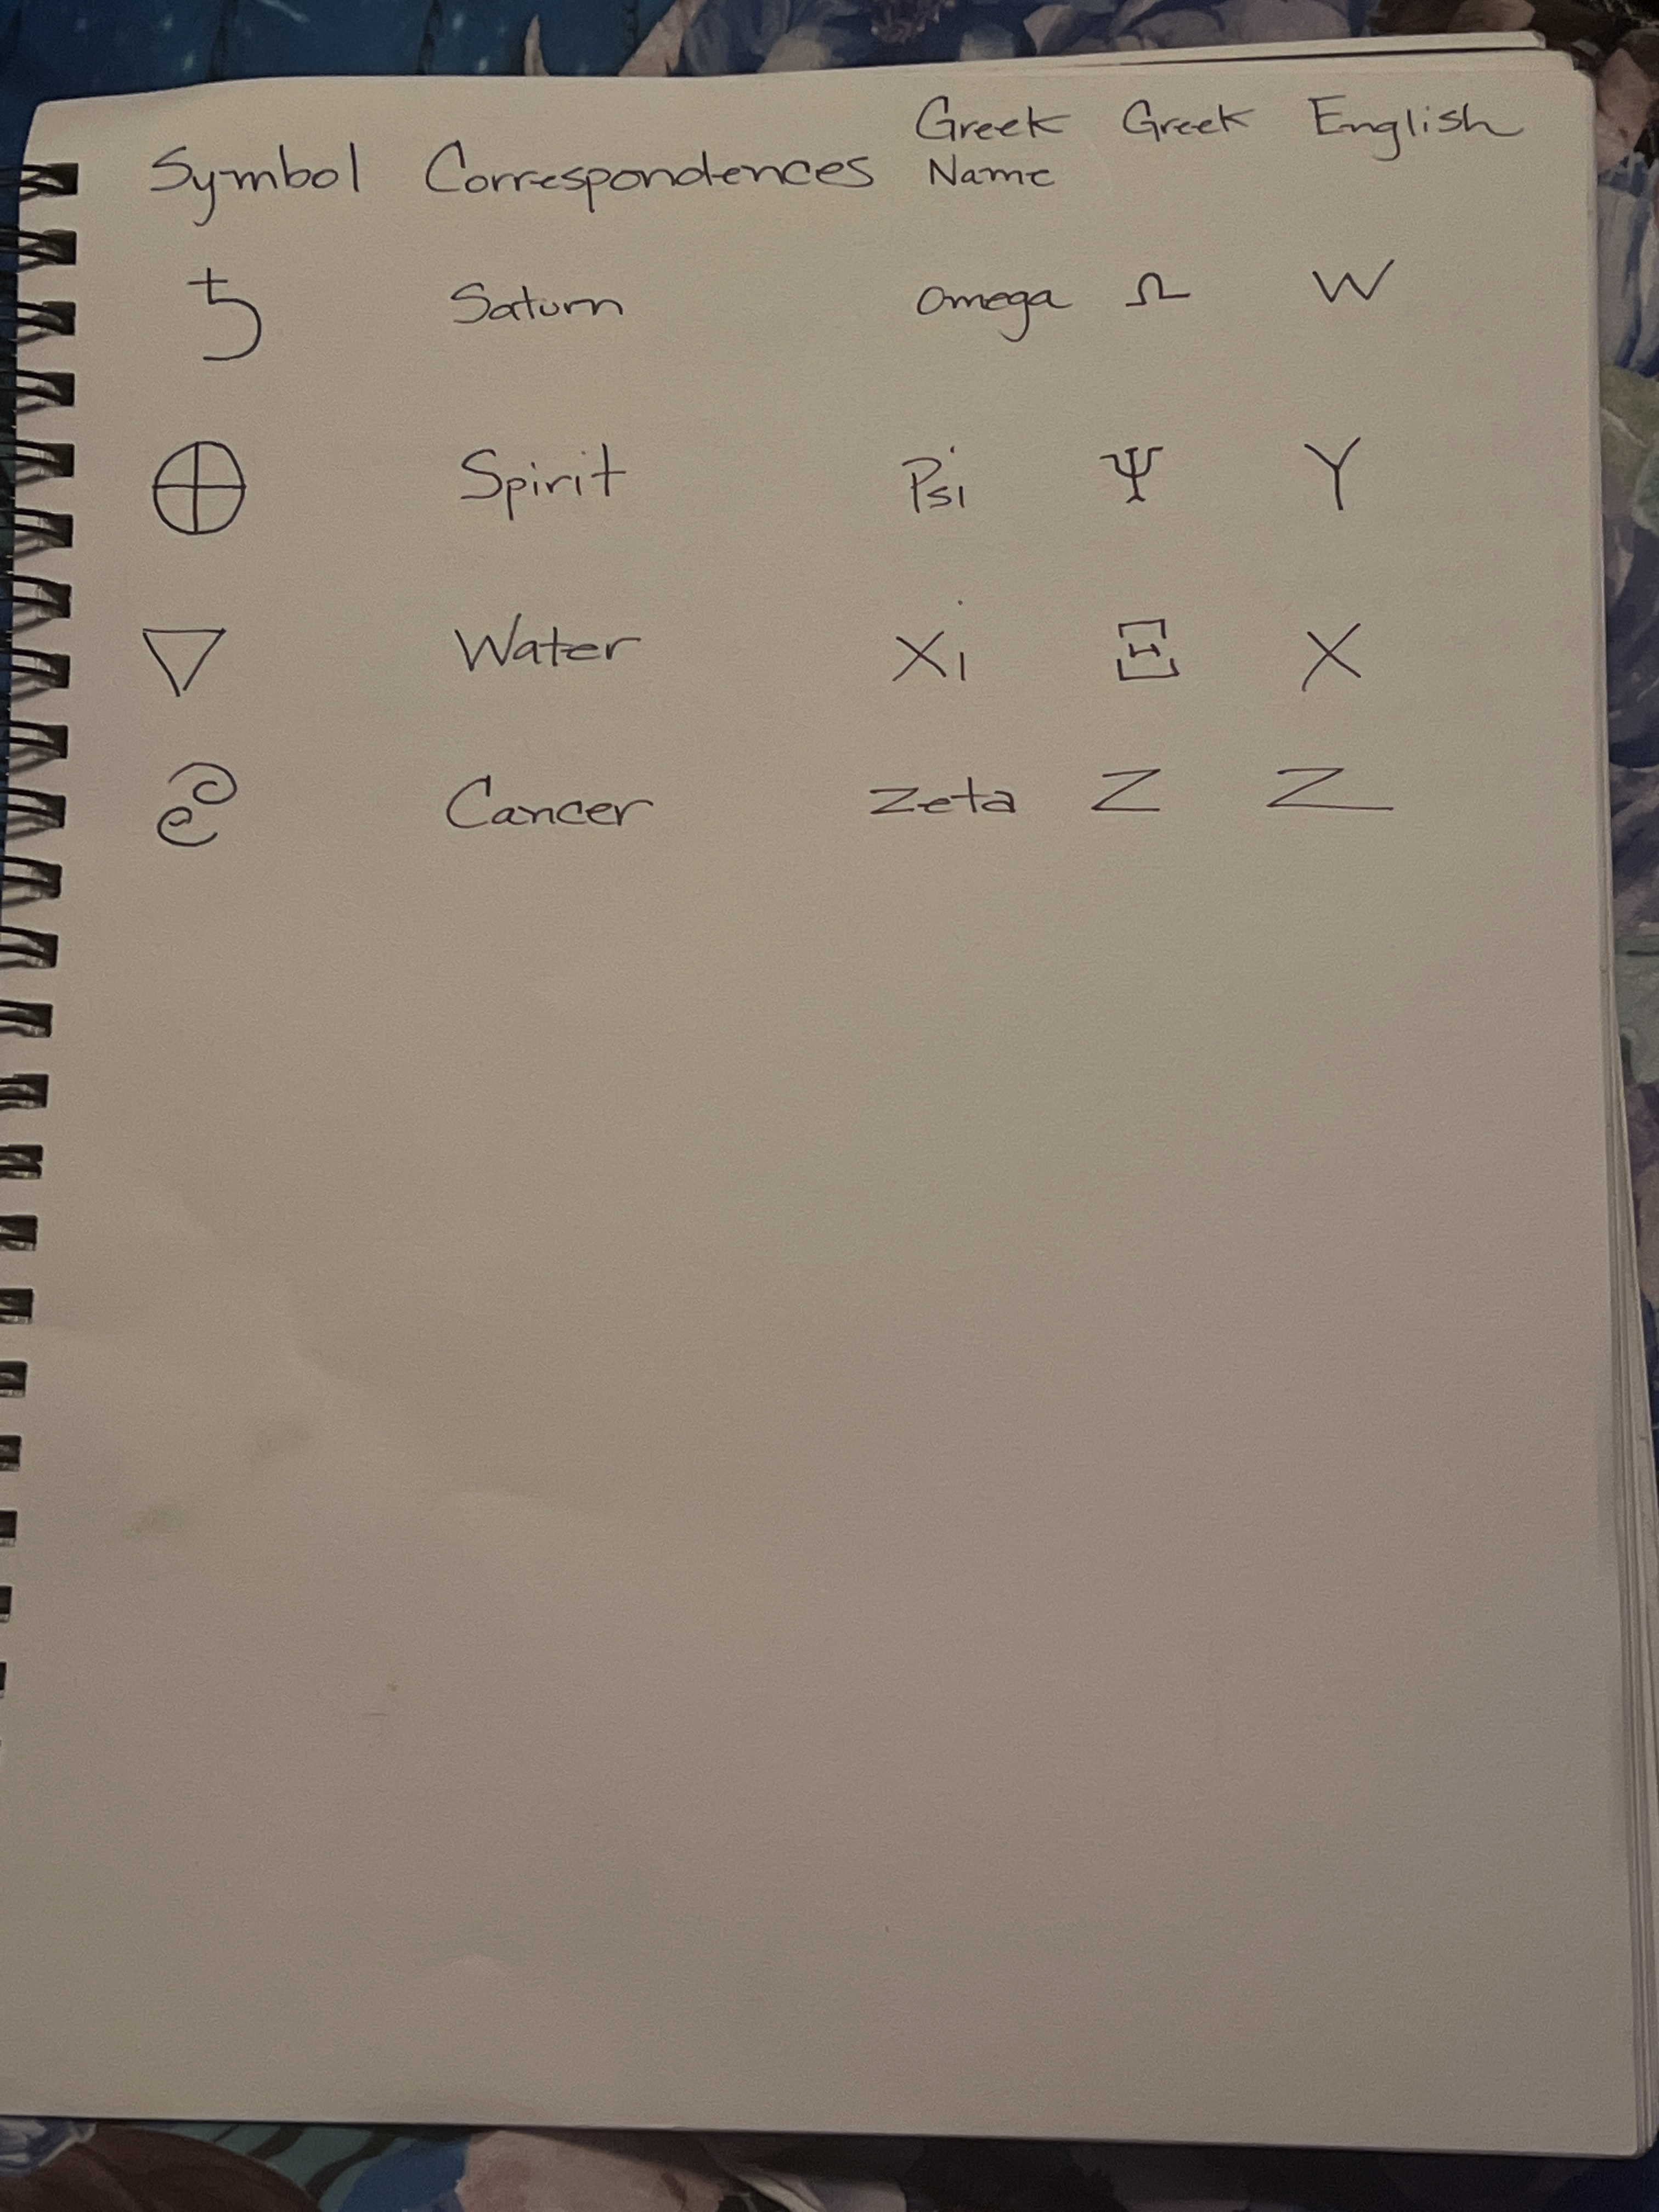 Symbol Correspondences Greek Name Greek English
♄ Saturn Omega Ω W
⊕ Spirit Psi Ψ Y
▽ Water Xi Ξ X
♋ Cancer Zeta Z Z